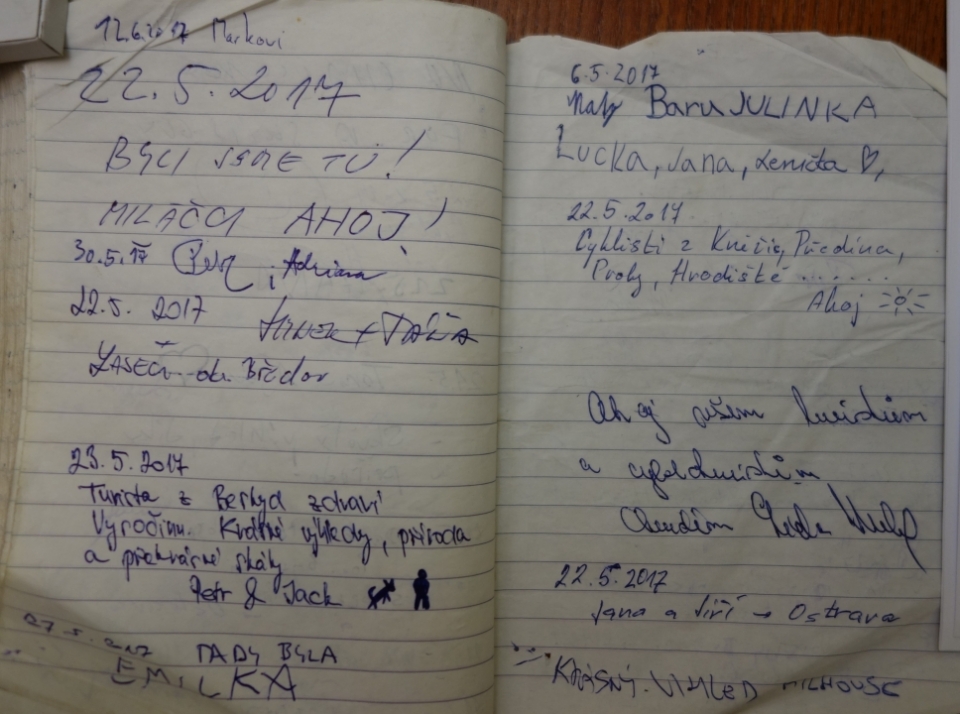 12.6.2017 Markovi
22.5.2017
BYLI JSME TU!
MILÁČCI AHOJ!
30.5.17 Adriana
22.5. 2017 HYNEK + TÁŇA
23.5.2017
Turista z Beskyd zdraví
Krásné výhledy, příroda
a překrásné skály
Petr & Jack
27.5.2017 TADY BYLA
EMILKA
6.5.2017
Naty Baru JULINKA
Lucka, Jana, Lenička ♡,
22.5.2017
Cyklisti z
Ahoj
Ahoj všem turistům
a cykloturistům
22.5.2017
Jana a Jiří → Ostrava
KRÁSNÝ VÝHLED MILHOUSE